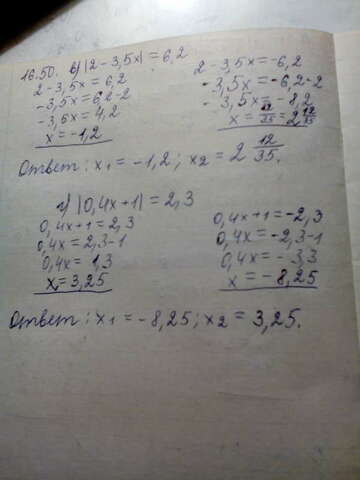 16.50. в) |2-3,5x| = 6,2
2-3,5x = 6,2
-3,5x = 6,2-2
-3,5x = 4,2
x = -1,2
2-3,5x = -6,2
-3,5x = -6,2-2
-3,5x = -8,2
x = = 2 12/35
Ответ: x1 = -1,2; x2 = 2 12/35.
г) |0,4x+1| = 2,3
0,4x+1 = 2,3
0,4x = 2,3-1
0,4x = 1,3
x = 3,25
0,4x+1 = -2,3
0,4x = -2,3-1
0,4x = -3,3
x = -8,25
Ответ: x1 = -8,25; x2 = 3,25.